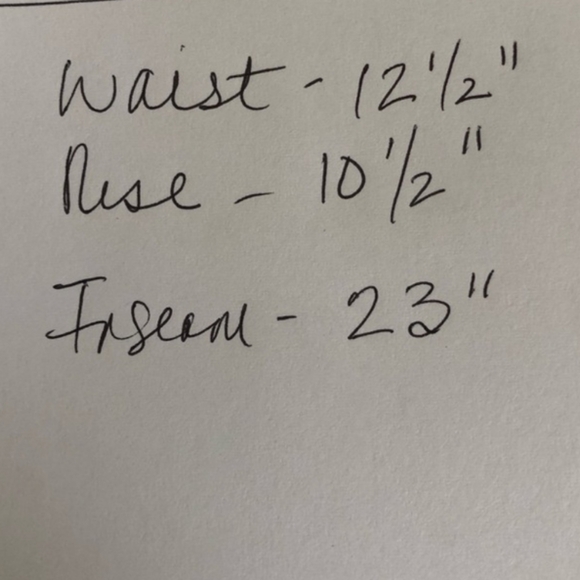 Waist - 12 1/2"
Rise - 10 1/2"
Inseam - 23"